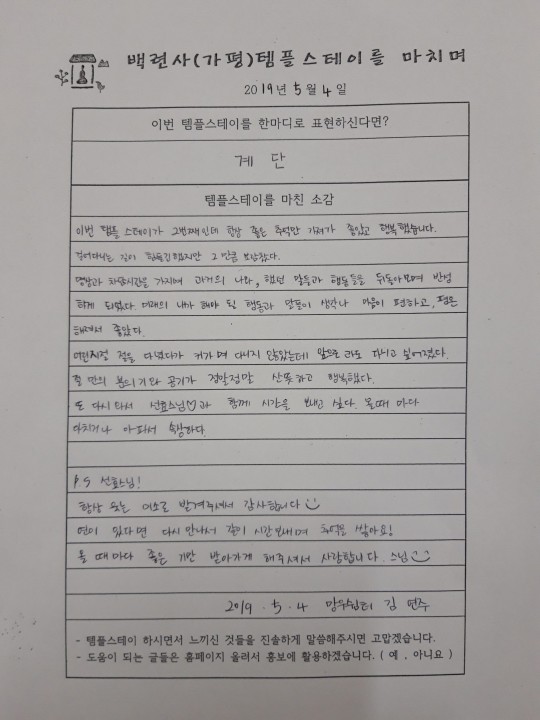 백련사(가평)템플스테이를 마치며
2019년 5월 4일
이번 템플스테이를 한마디로 표현하신다면?
계단
템플스테이를 마친 소감
이번 템플 스테이가 2번째인데 항상 좋은 추억만 가져가 좋았고 행복했습니다.
걸어다니는 길이 힘들긴했지만 그만큼 보람찼다.
명상과 차담시간을 가지며 과거의 나와, 했던 말들과 행동들을 뒤돌아보며 반성
하게 되었다. 미래의 내가 해야 될 행동과 말들이 생각나 마음이 편하고, 평온
해져서 좋았다.
어린시절 절을 다녔다가 커가며 다니지 않았는데 앞으로 다니고 싶어졌다.
절 만의 분위기와 공기가 정말정말 산뜻하고 행복했다.
또 다시와서 선효스님♡과 함께 시간을 보내고 싶다. 올때 마다
다치거나 아파서 속상하다.
P.S 선효스님!
항상 웃는 미소로 반겨주셔서 감사합니다
연이 있다면 다시 만나서 같이 시간보내며 추억을 쌓아요!
올 때마다 좋은 기만 받아가게 해주셔서 사랑합니다. 스님
2019 . 5 . 4 김 연주
- 템플스테이 하시면서 느끼신 것들을 진솔하게 말씀해주시면 고맙겠습니다.
- 도움이 되는 글들은 홈페이지 올려서 홍보에 활용하겠습니다. ( 예 . 아니요 )